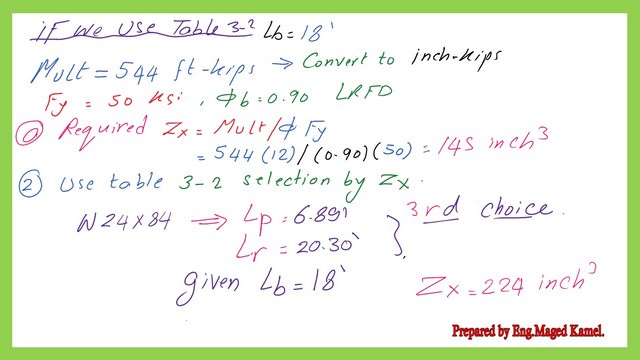 if We Use Table 3-2 Lb = 18'
Mult = 544 ft-kips → Convert to inch-kips
Fy = 50 ksi , Φb = 0.90 LRFD
① Required Zx = Mult/Φ Fy
= 544 (12) / (0.90) (50) = 145 inch³
② Use table 3-2 selection by Zx.
W 24 x 84 ⇒ Lp = 6.89' } 3rd choice.
Lr = 20.30'
given Lb = 18' Zx = 224 inch³
Prepared by Eng.Maged Kamel.